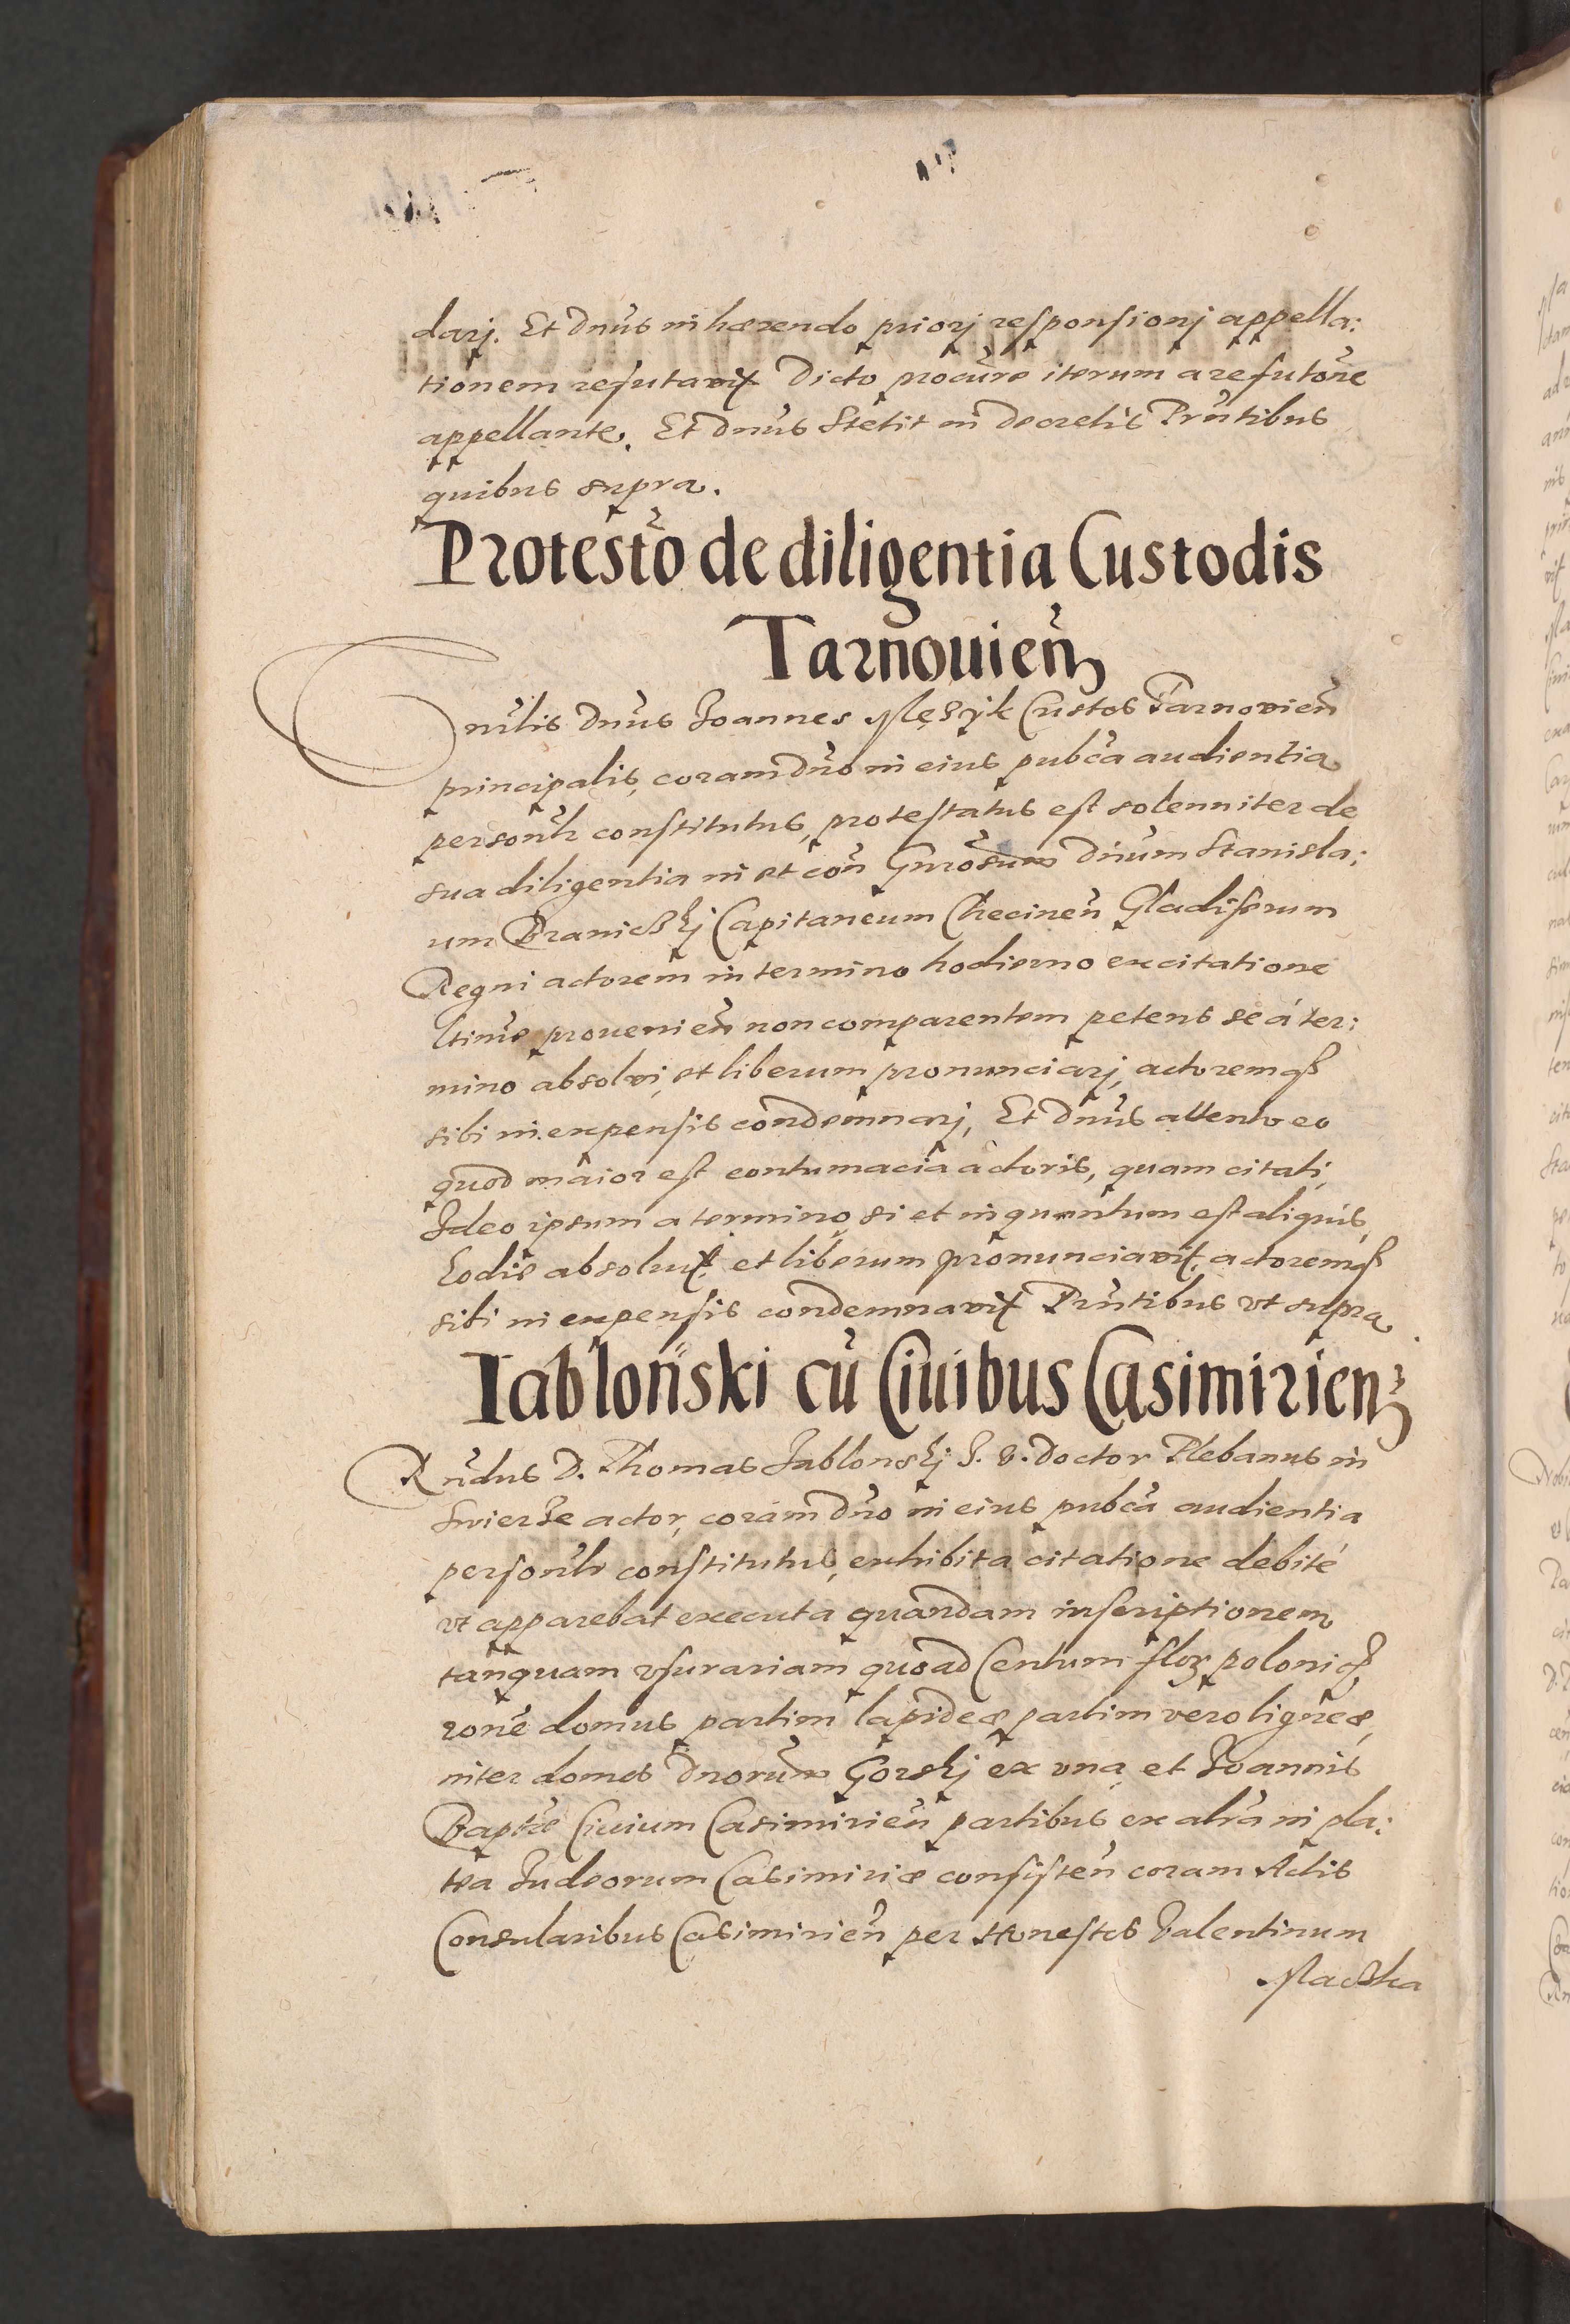 darj. Et Dnus inhærendo priorj responsionj appella:
tionem refutavit Dicto procure iterum a refutone
appellante. Et Dnus Stetit in decretis Pntibus
quibus supra.
Protesto de diligentia Custodis
Tarnouien
nilis Dnus Joannes Mężyk Custos Tarnovien
principalis, coram Dno in eius pubca audientia
personlr constitutus, protestatus est solenniter de
sua diligentia in et con Gnrosum Dnum Stanisla:
um Braniczkj Capitaneum Checinen Gladiferum
Regni actorem in termino hodierno ex citatione
ltime prouenien non comparentem petens se á ter:
mino absolvi, et liberum pronunciarj, actoremq3
sibi in expensis condemnarj, Et Dnus attento eo
quod maior est contumacia actoris, quam citati,
Ideo ipsum a termino si et inquantum est aliquis,
hodie absoluit et liberum pronunciavit, actoremq3
sibi in expensis condemnavit Pntibus vt supra
Iablonski cu Ciuibus Casimirien
Rndus D. Thomas Jablonskj J. V. Doctor Plebanus in
actor, coram Dno in eius pubca audientia
personlr constitutus, exhibita citatione debité
vt apparebat executa quandam inscriptionem
tanquam vsurariam quoad Centum flor polonic3
rone domus partim lapideæ partim vero ligneæ,
inter domos Dnorum Gorskj ex vna et Joannis
Baptæ Ciuium Casimirien partibus ex altra in pla:
tea Judeorum Casimiriæ consisten coram Actis
Consularibus Casimirien per Honestos Valentinum
Maczka